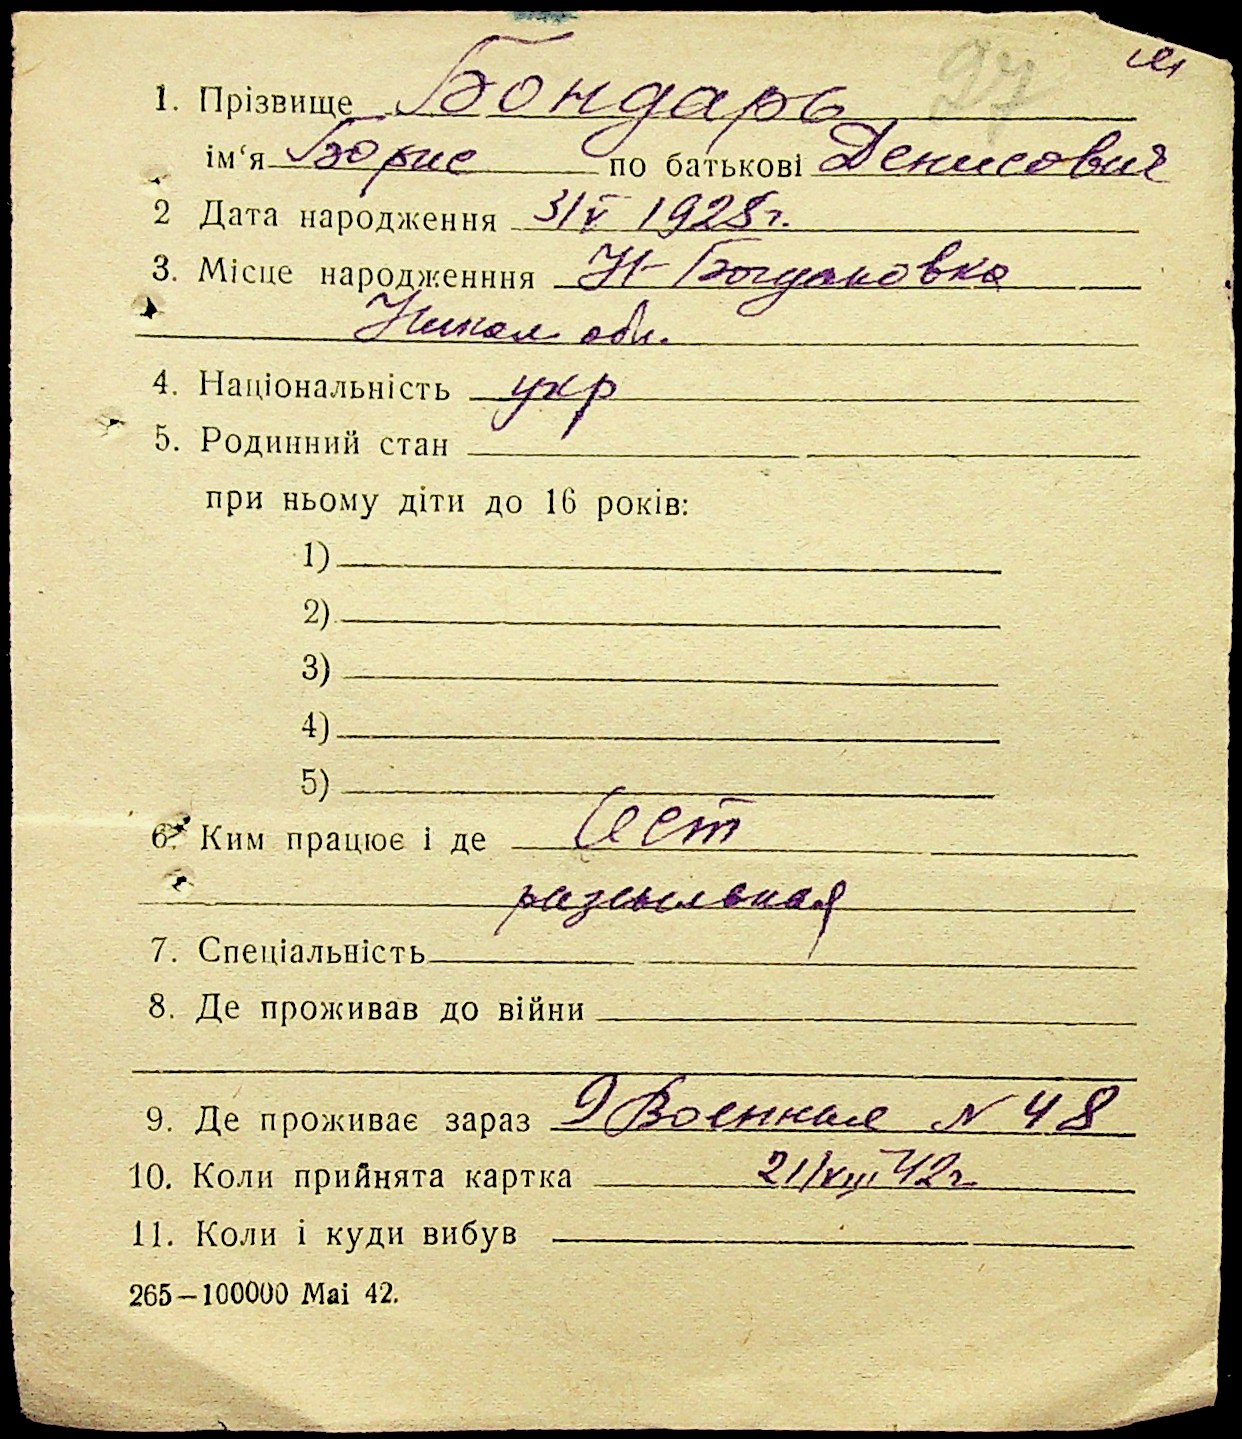 27
1. Прізвище Бондарь
ім‘я Борис по батькові Денисович
2 Дата народження 3/V 1928г.
3. Місце народженння Н-Богдановка
Никол обл.
4. Національність укр
5. Родинний стан
при ньому діти до 16 років:
1)
2)
3)
4)
5)
6. Ким працює і де
разсыльная
7. Спеціальність
8. Де проживав до війни
9. Де проживає зараз 9 Военная N 48
10. Коли прийнята картка 21/VIII 42г.
11. Коли і куди вибув
265—100000 Маі 42.